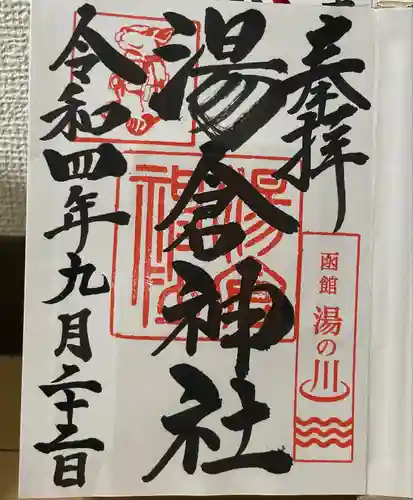 奉拝
函館 湯の川
湯倉神社
令和四年九月二十二日